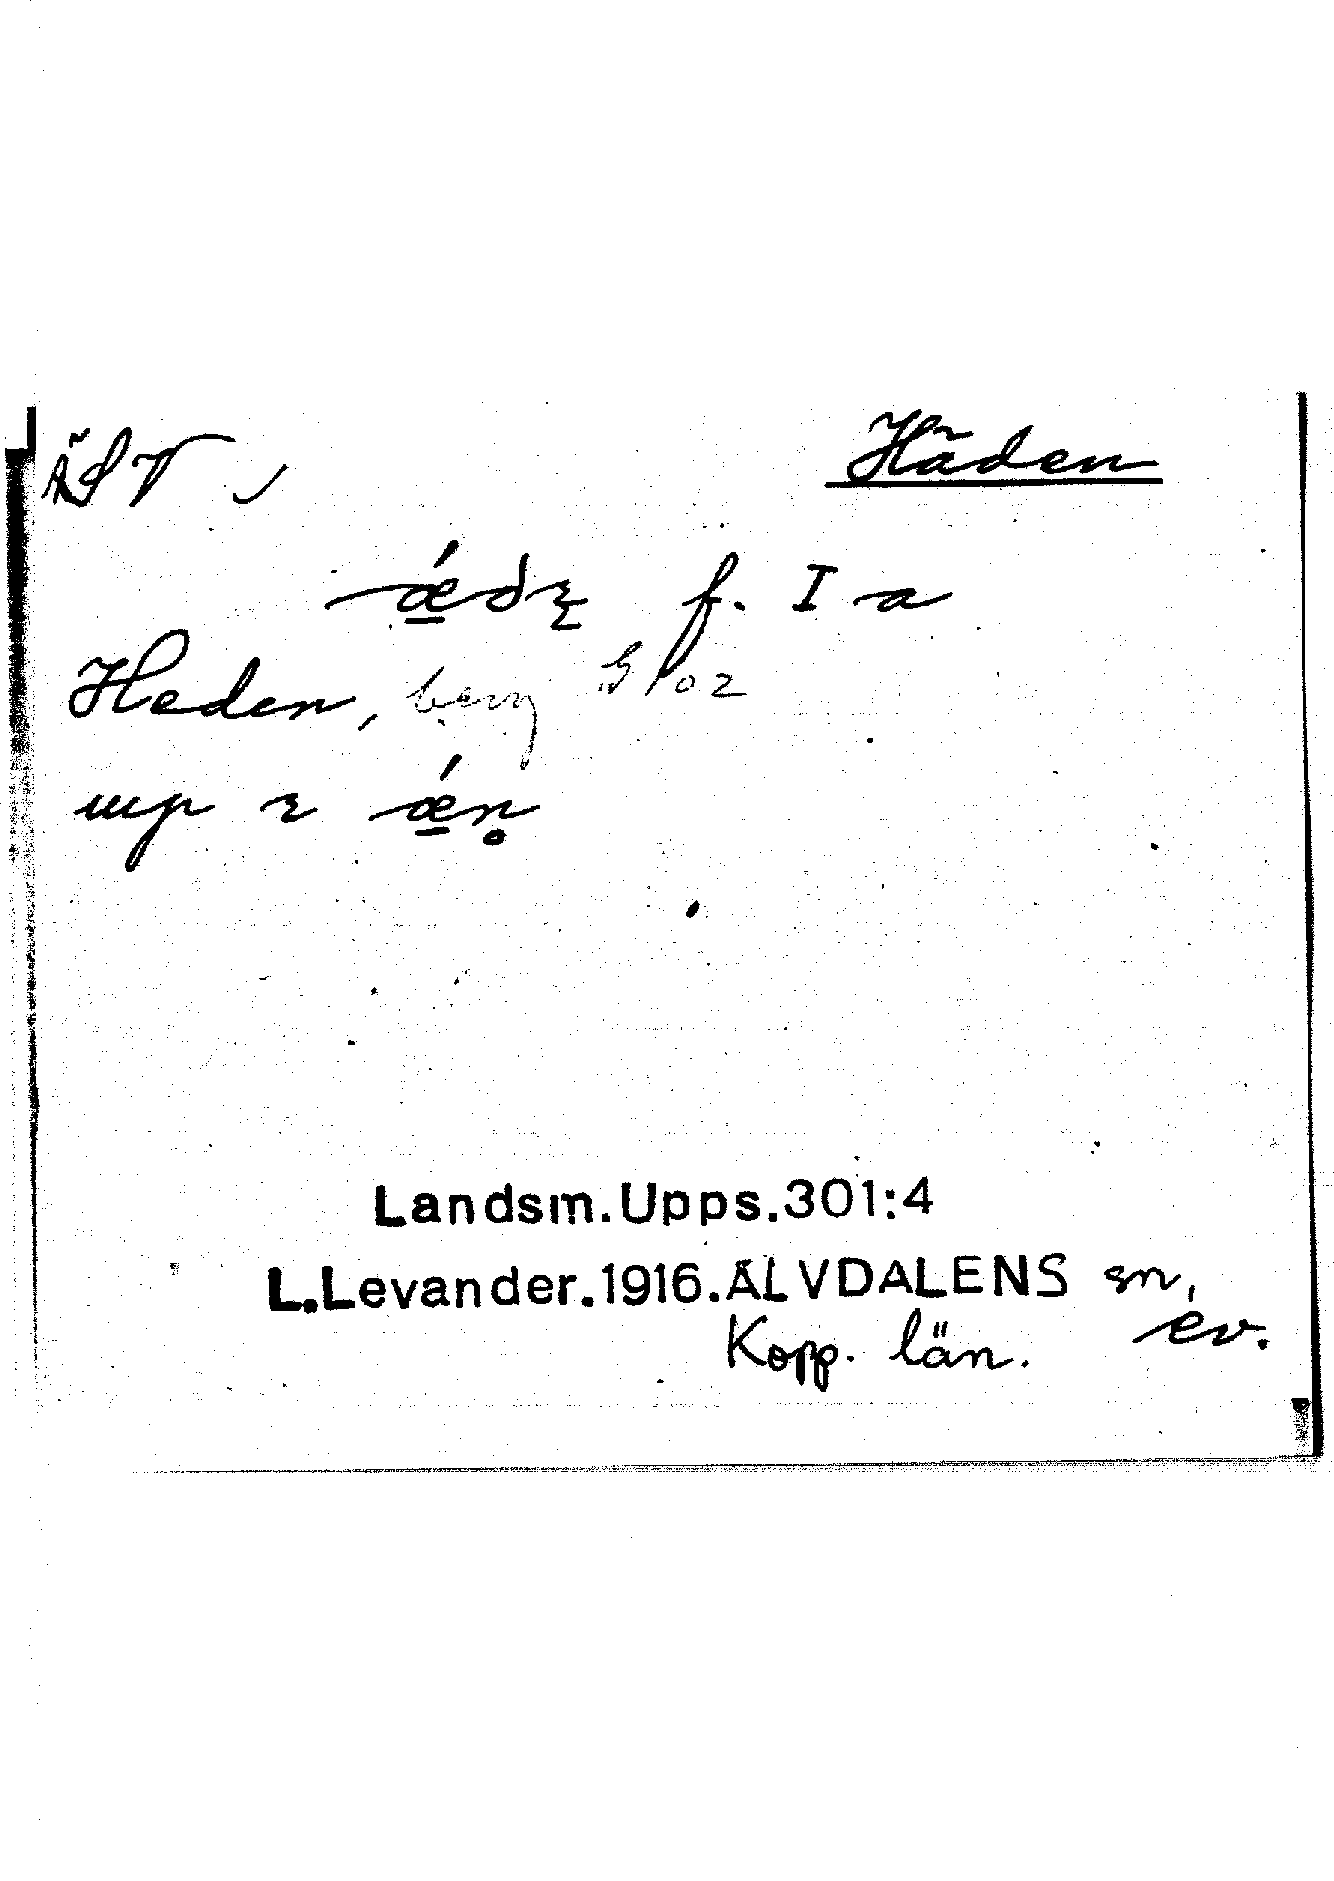 ÄST Häden
ǽdę f. I a
Heden, berg
upp ı ǽn̥
Landsm.Upps.301:4
L.Levander.1916.ÄLVDALENS sn,
Kopp. län. ev.